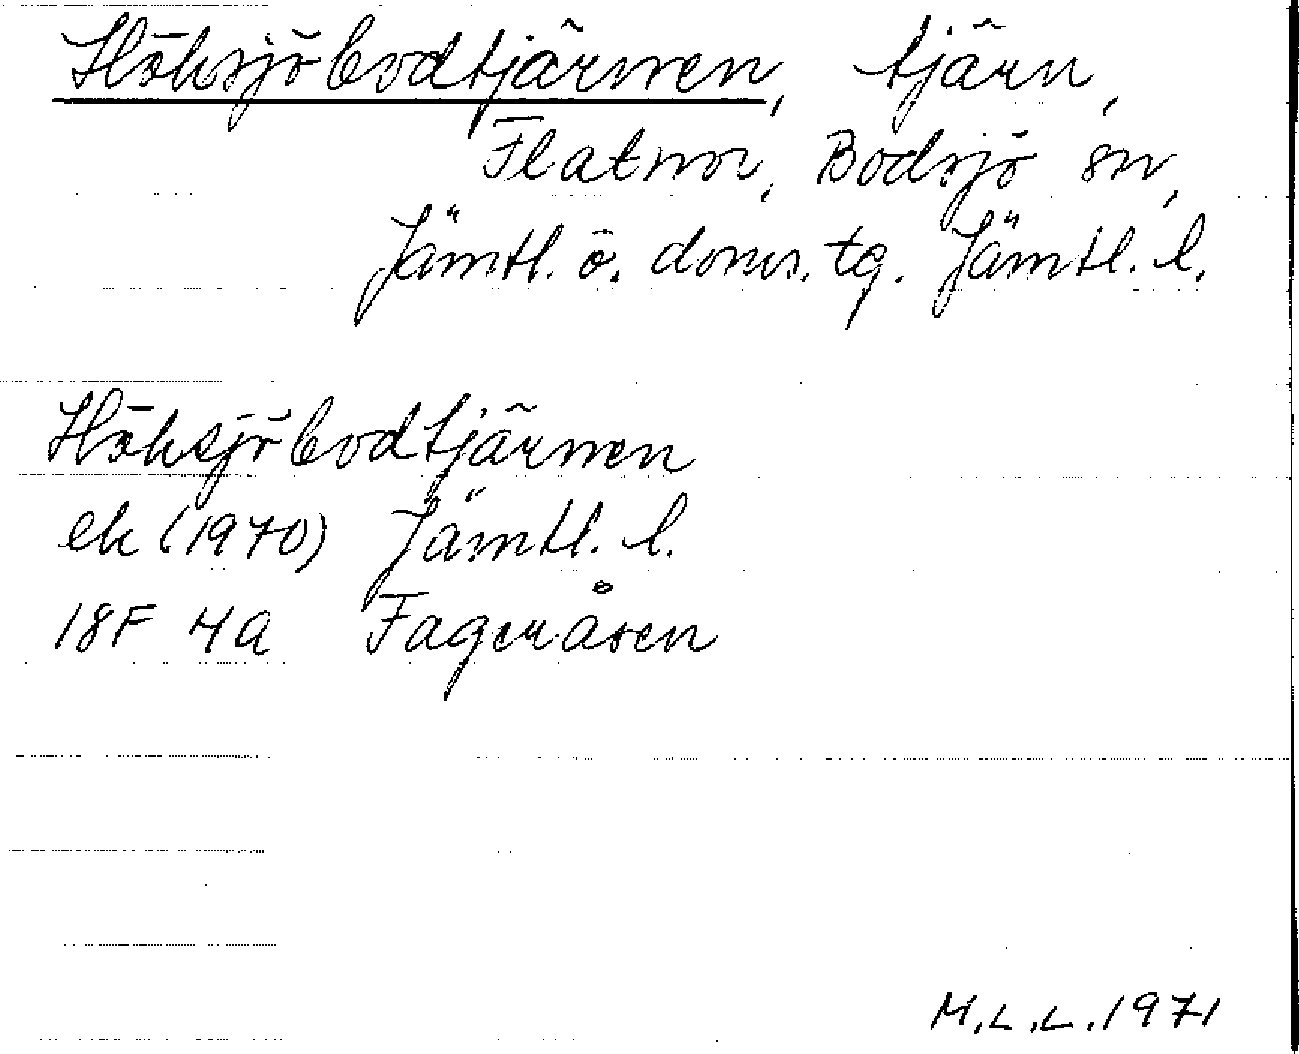 Höksjöbodtjärnen, tjärn,
Flatnor, Bodsjö sn,
Jämtl. ö. doms. tg. Jämtl. l.
Höksjöbodtjärnen
ek (1970) Jämtl. l.
18F 4a Fageråsen
M.L.L. 1971